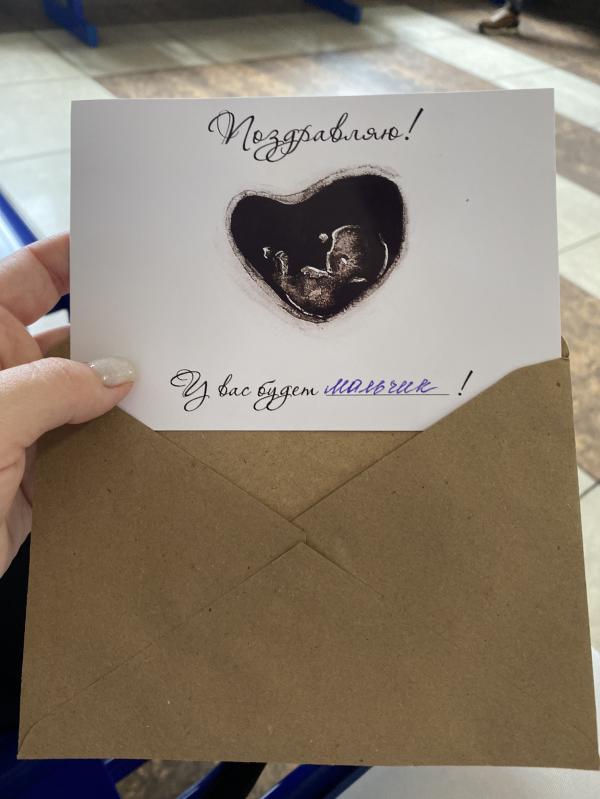 Поздравляю!
У вас будет мальчик!